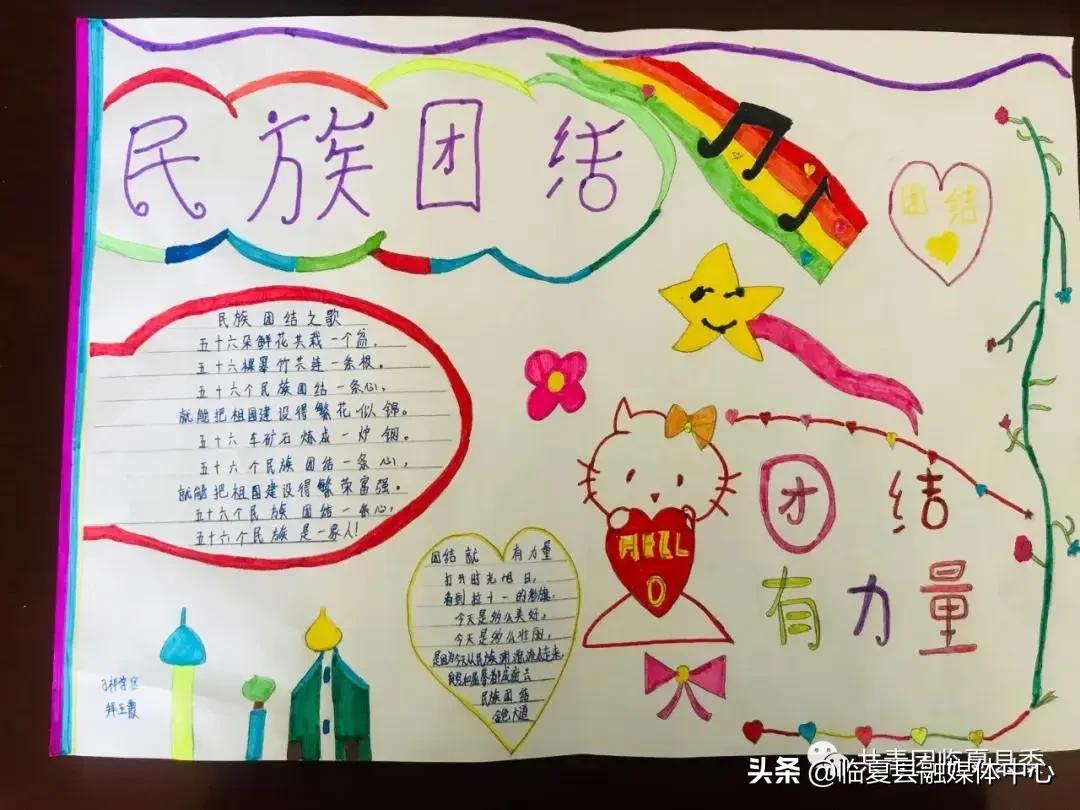 民族团结
团结
民族团结之歌
五十六朵鲜花共栽一个盆,
五十六棵翠竹共连一条根。
五十六个民族团结一条心,
就能把祖国建设得繁花似锦。
五十六车矿石炼成一炉钢。
五十六个民族团结一条心,
就能把祖国建设得繁荣富强。
五十六个民族团结一条心,
五十六个民族是一家人!
HELL
O
团结
有力量
团结就 有力量
打开时光
看到
今天是多么美好,
今天是多么壮丽,
民族团结
金色大道
共青团临夏县委
头条 @临夏县融媒体中心